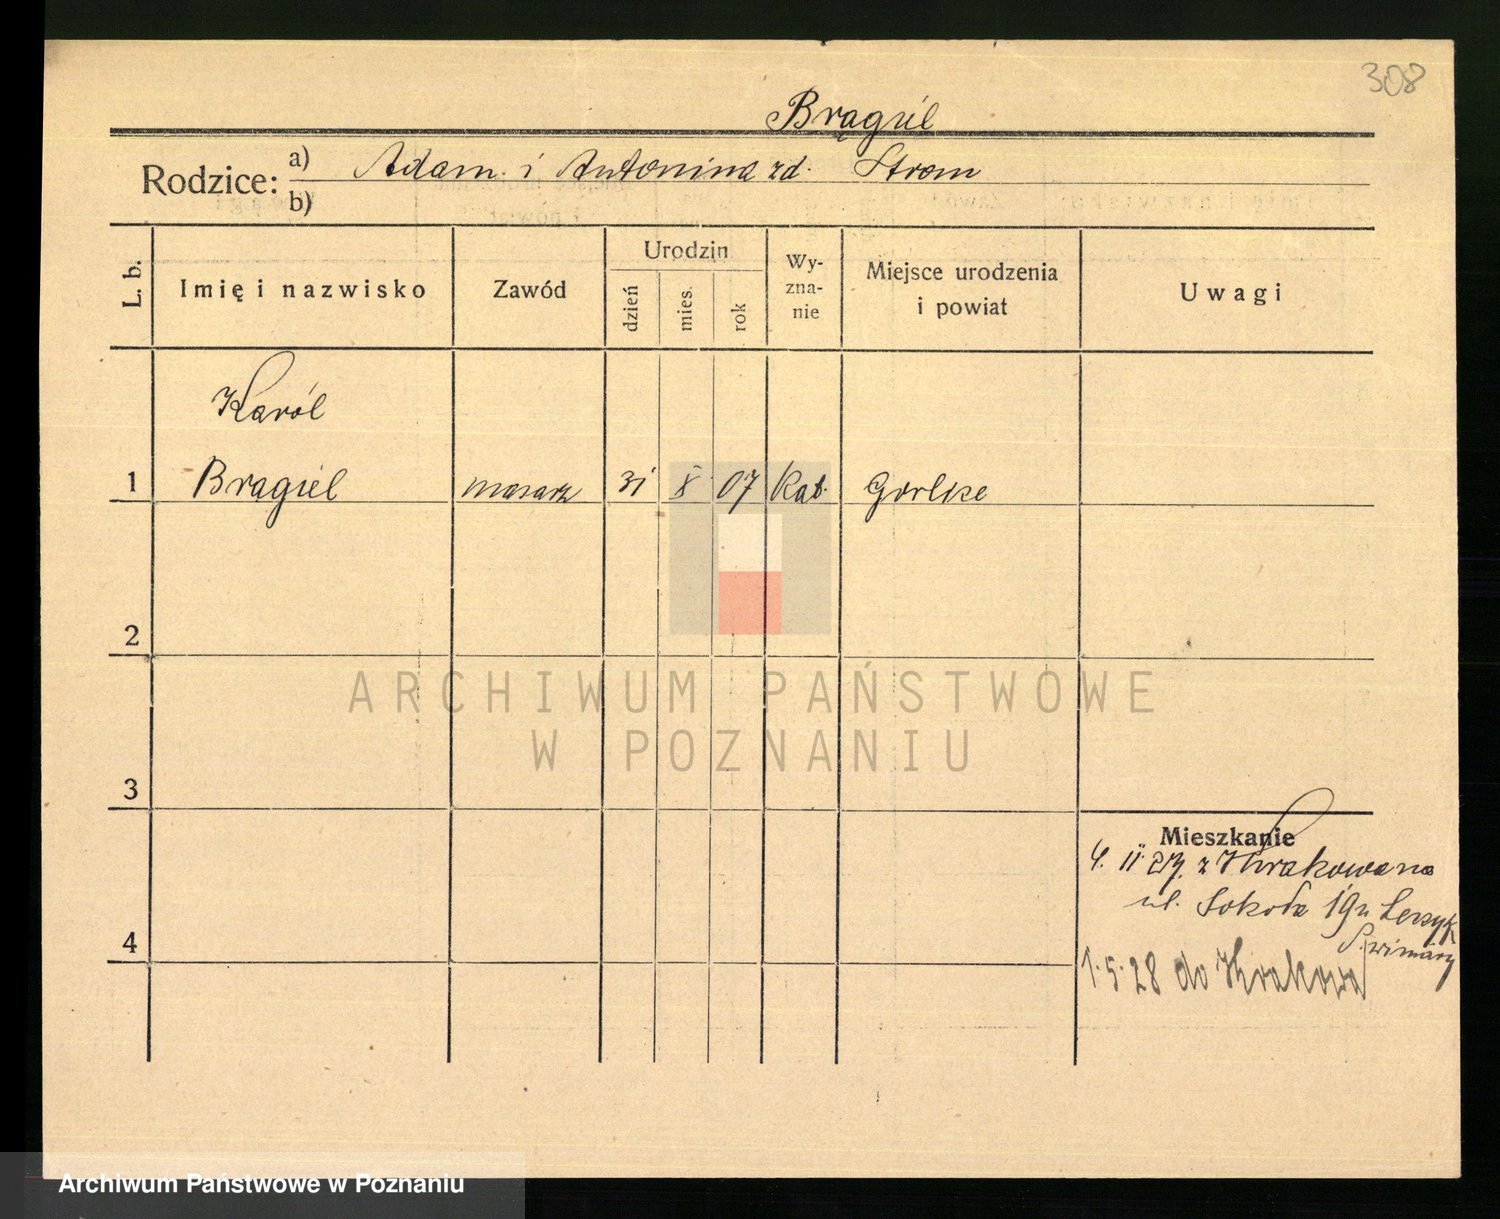 308
Brągiel
Rodzice: a) Adam i Antonina zd. Strom
b)
L. b.
Imię i nazwisko
Zawód
Urodzin
dzień
mies.
rok
Wy-
zna-
nie
Miejsce urodzenia
i powiat
Uwagi
Karól
1 Bragiel masarz 31 X 07 Kat. Gorlice
2
3
4
Mieszkanie
4. II 27. z Krakowa na
ul. 19
1.5.28 do Krakowa
ARCHIWUM PAŃSTWOWE
W POZNANIU
Archiwum Państwowe w Poznaniu